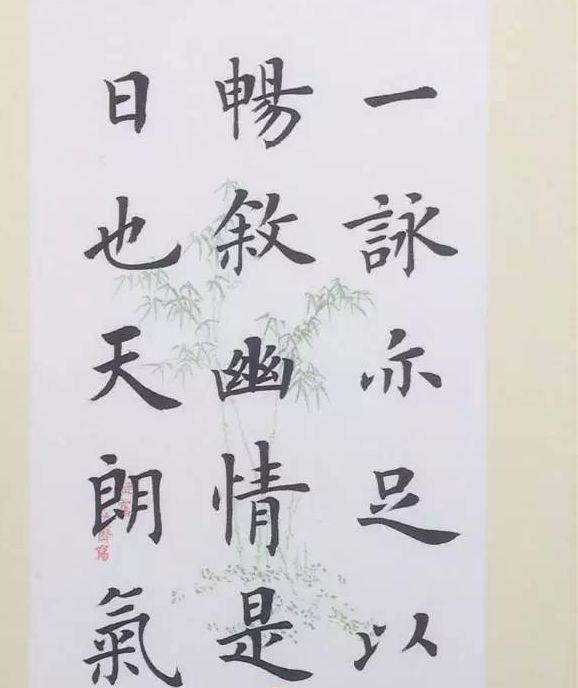 一詠亦足以
暢敘幽情是
日也天朗氣